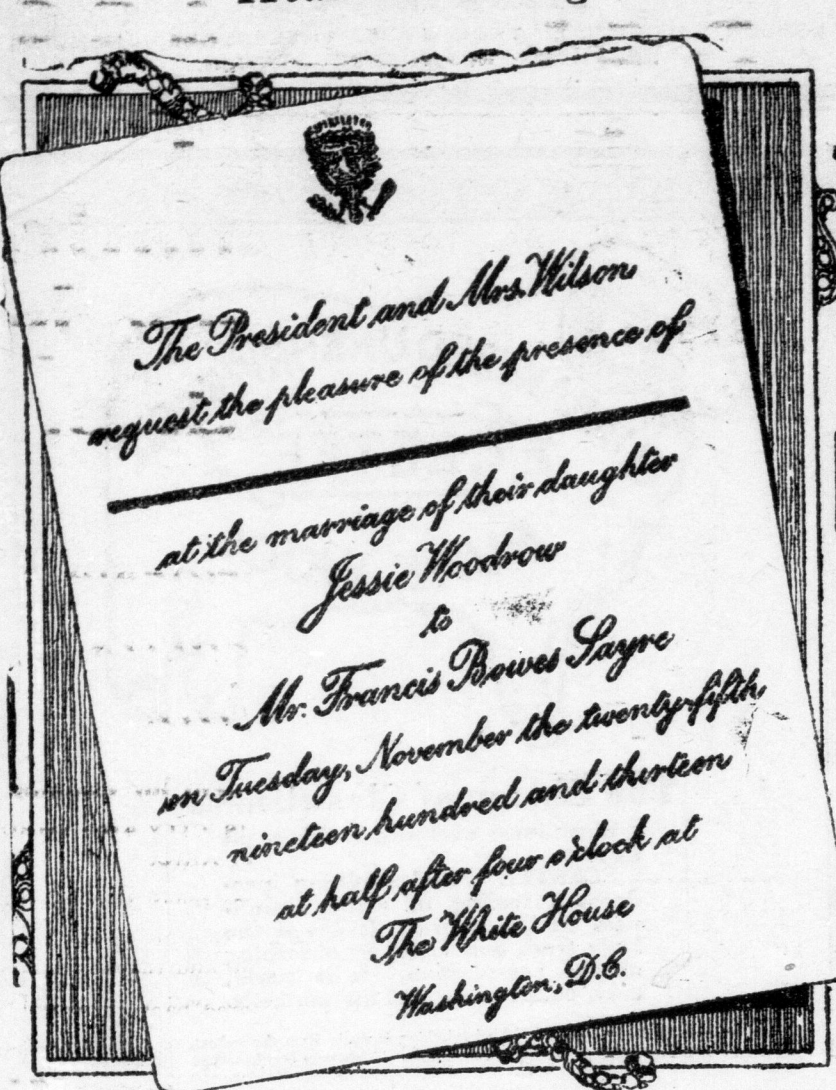 The President and Mrs. Wilson
request the pleasure of the presence of
at the marriage of their daughter
Jessie Woodrow
to
Mr. Francis Bowes Sayre
on Tuesday, November the twenty-fifth
nineteen hundred and thirteen
at half after four o'clock at
The White House
Washington, D.C.